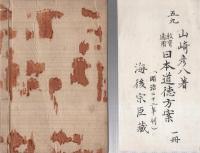 五九
山崎彦八著
教育適用
日本道徳方案 一冊
(明治二十一年刊)
海後宗臣藏